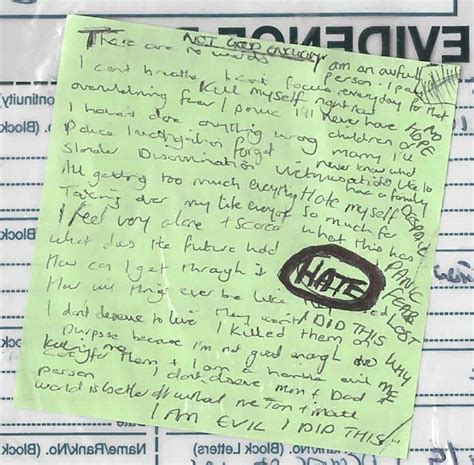 EVIDENCE
NOT GOOD ENOUGH
There are no words
I am an awful person
I can't breathe I can't focus
I pay everyday for that
Kill myself right now
overwhelming fear I panic
I'll never have
NO HOPE
children or marry
I haven't done anything wrong
I'll never know what
Police investigation forget
Slander Discrimination Victimisation
like to have a family
All getting too much everything
Hate myself so much for what this has
DESPAIR
PANIC
FEAR
LOST
Taking over my life everyday
I feel very alone + scared
What does the future hold
How can I get through it
HATE
How will things ever be like
They won't
I DID THIS
WHY ME
I don't deserve to live
I killed them on
purpose because I'm not good enough to
care for them + I am a horrible evil
person
I don't deserve mum + Dad +
world is better off without me
I AM EVIL I DID THIS
Continuity
No. (Block
(Block
(Block
Name/Rank/No. (Block Letters)
Rank/No. (Block Letters)